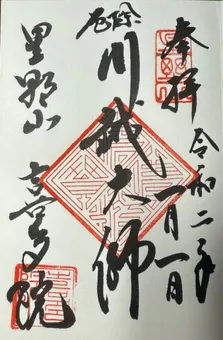 奉拝
令和二年
一月一日
厄除
川越大師
星野山
喜多院